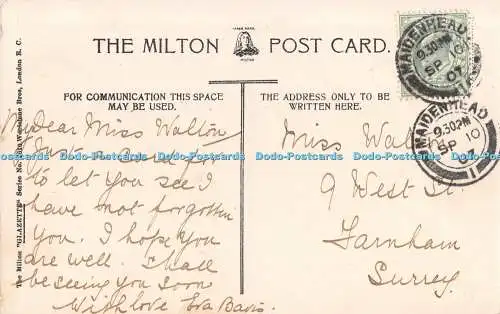 THE MILTON POST CARD.
MILTON
FOR COMMUNICATION THIS SPACE
MAY BE USED.
THE ADDRESS ONLY TO BE
WRITTEN HERE.
MAIDENHEAD
9.30PM
SP 10
07
MAIDENHEAD
9.30PM
SP 10
07
1
My dear Miss Walton
Just a card
to let you see I
have not forgotten
you. I hope you
are well. Shall
be seeing you soon
With love Eva Bavis.
Miss Walton
9 West St.
Farnham
Surrey.
The Milton "GLAZETTE" Series No. Woolstone Bros, London E. C.
Dodo-Postcards Dodo-Postcards Dodo-Postcards Dodo-Postcards Dodo-Postcards